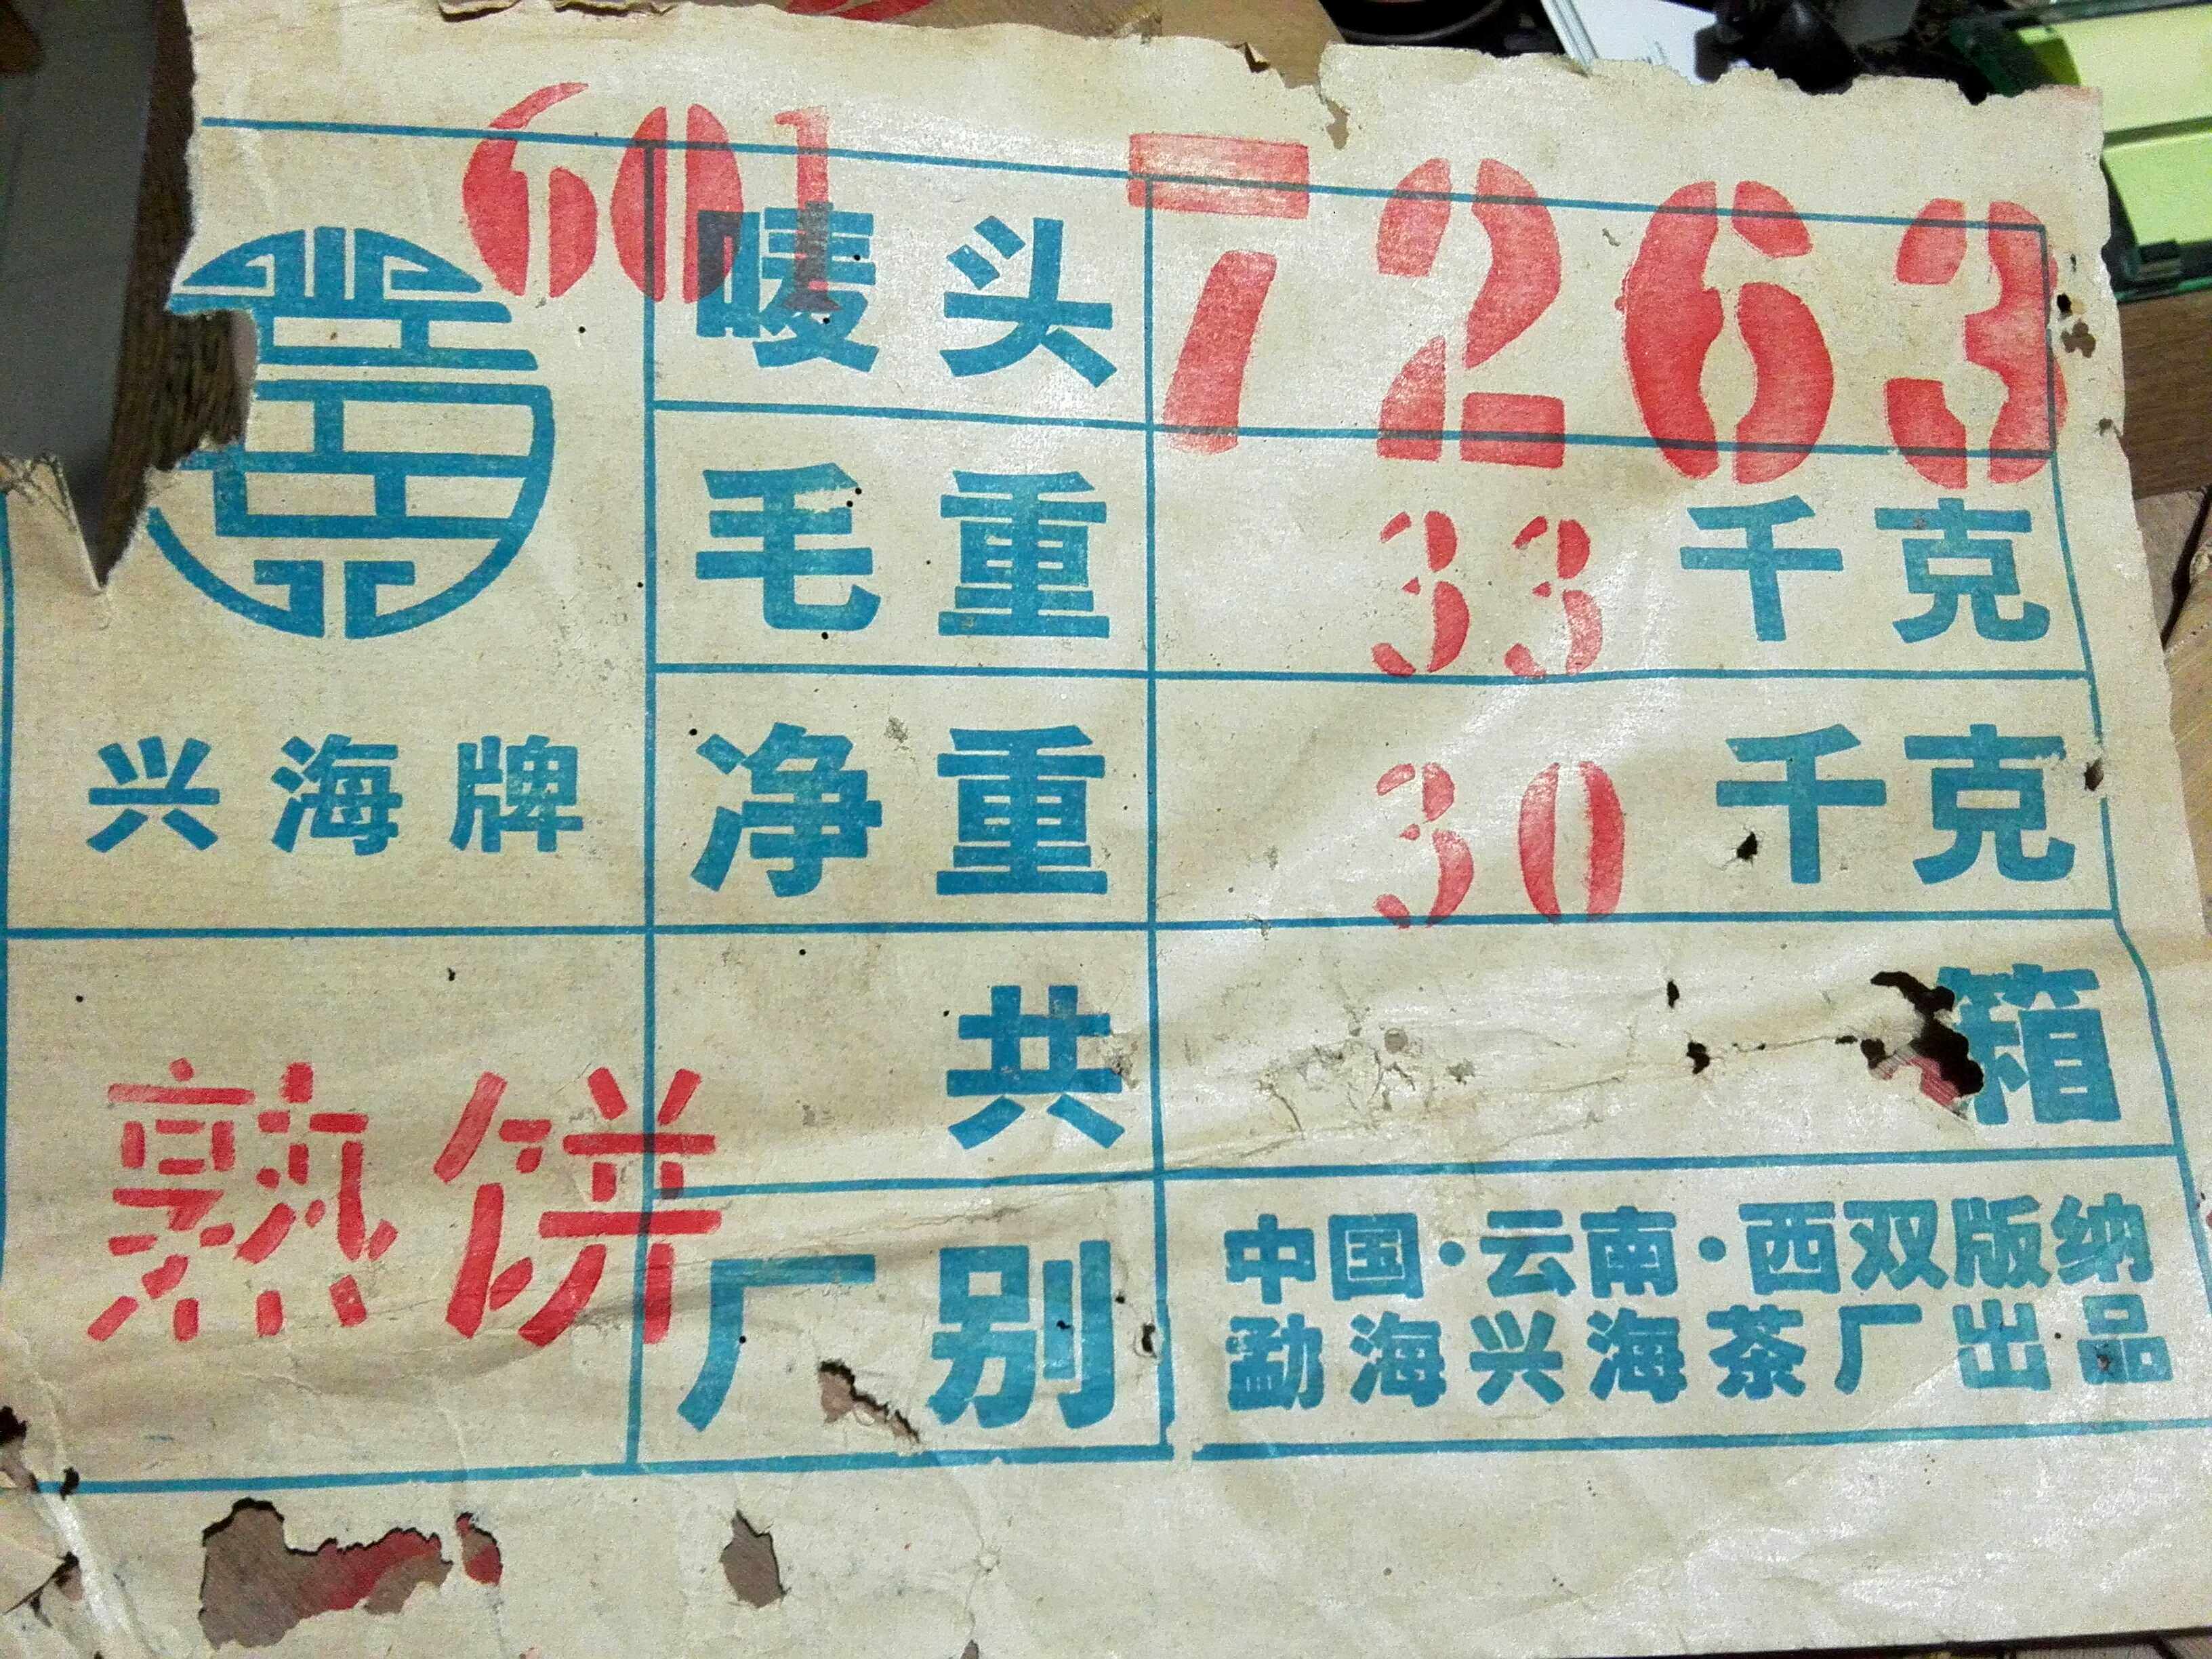 601
唛头 7263
毛重 33 千克
兴海牌
净重 30 千克
共 箱
熟饼
厂别
中国·云南·西双版纳
勐海兴海茶厂出品